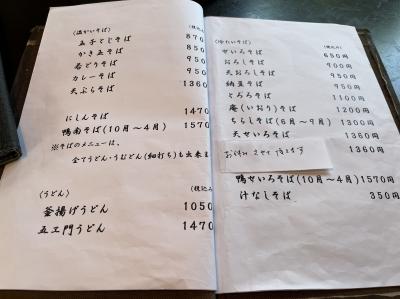 (温かいそば) (税込み)
玉子とじそば 870
かき玉そば 850
若どりそば 950
カレーそば 950
天ぷらそば 1360
にしんそば 1470
鴨南そば(10月〜4月) 1570
※そばのメニューは、
全てうどん・うむどん(細打ち)も出来ま
(うどん) (税込み
釜揚げうどん 1050
五エ門うどん 1470
(冷たいそば) (税込み)
せいろそば 650円
おろしそば 900円
天おろしそば 950円
納豆そば 950円
とろろそば 1100円
庵(いおり)そば 1200円
ちらしそば(6月〜9月) 1300円
天せいろそば 1360円
お休み させて頂きます 1360円
鴨せいろそば(10月〜4月) 1570円
汁なしそば 350円